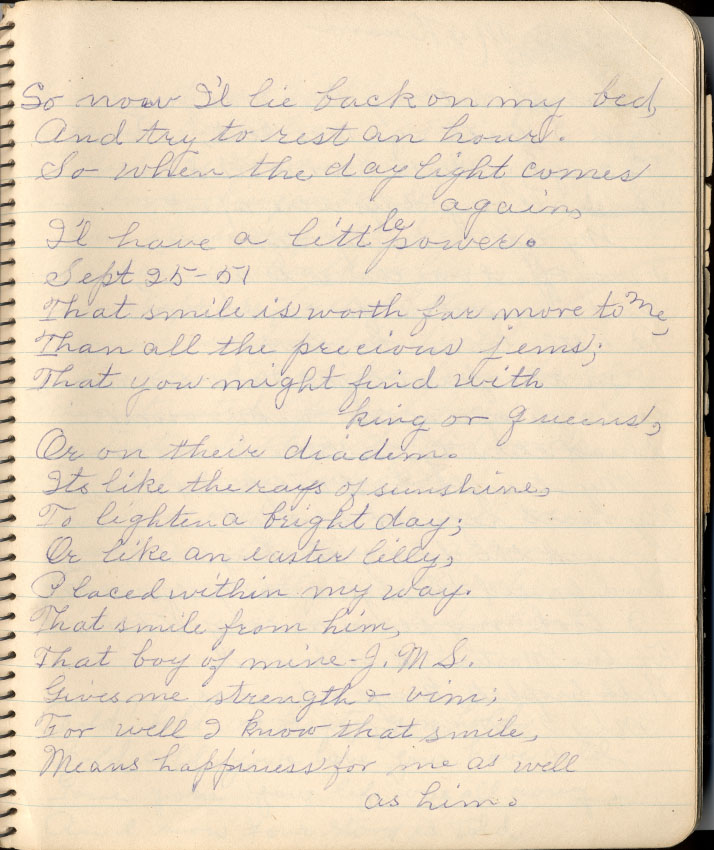 So now I'l lie back on my bed,
And try to rest an hour.
So when the daylight comes
again,
I'l have a little power.
Sept 25-51
That smile is worth far more to me,
Than all the precious jems;
That you might find with
king or queens,
Or on their diadem.
Its like the rays of sunshine,
To lighten a bright day;
Or like an easter lilly,
Placed within my way.
That smile from him,
That boy of mine - J. M S.
Gives me strength & vim;
For well I know that smile,
Means happiness for me as well
as him.